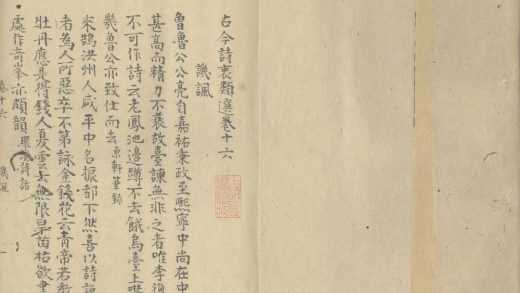 古今詩衷類選卷十六
譏諷
魯魯公公亮自嘉祐秉政至熙寧中尚在中
甚高而精力不衰故臺諫無非之者唯李復
不可作詩云老鳳池邊蹲不去餓烏臺上噤
幾魯公亦致仕而去 東軒筆錄
來鵠洪州人咸平中名振都下然喜以詩譏
者為人所惡卒不第詠金錢花云青帝若教
牡丹應是得錢人夏雲云無限旱苗枯欲盡
處作奇峯亦頗韻 環溪詩話
卷十六 譏諷